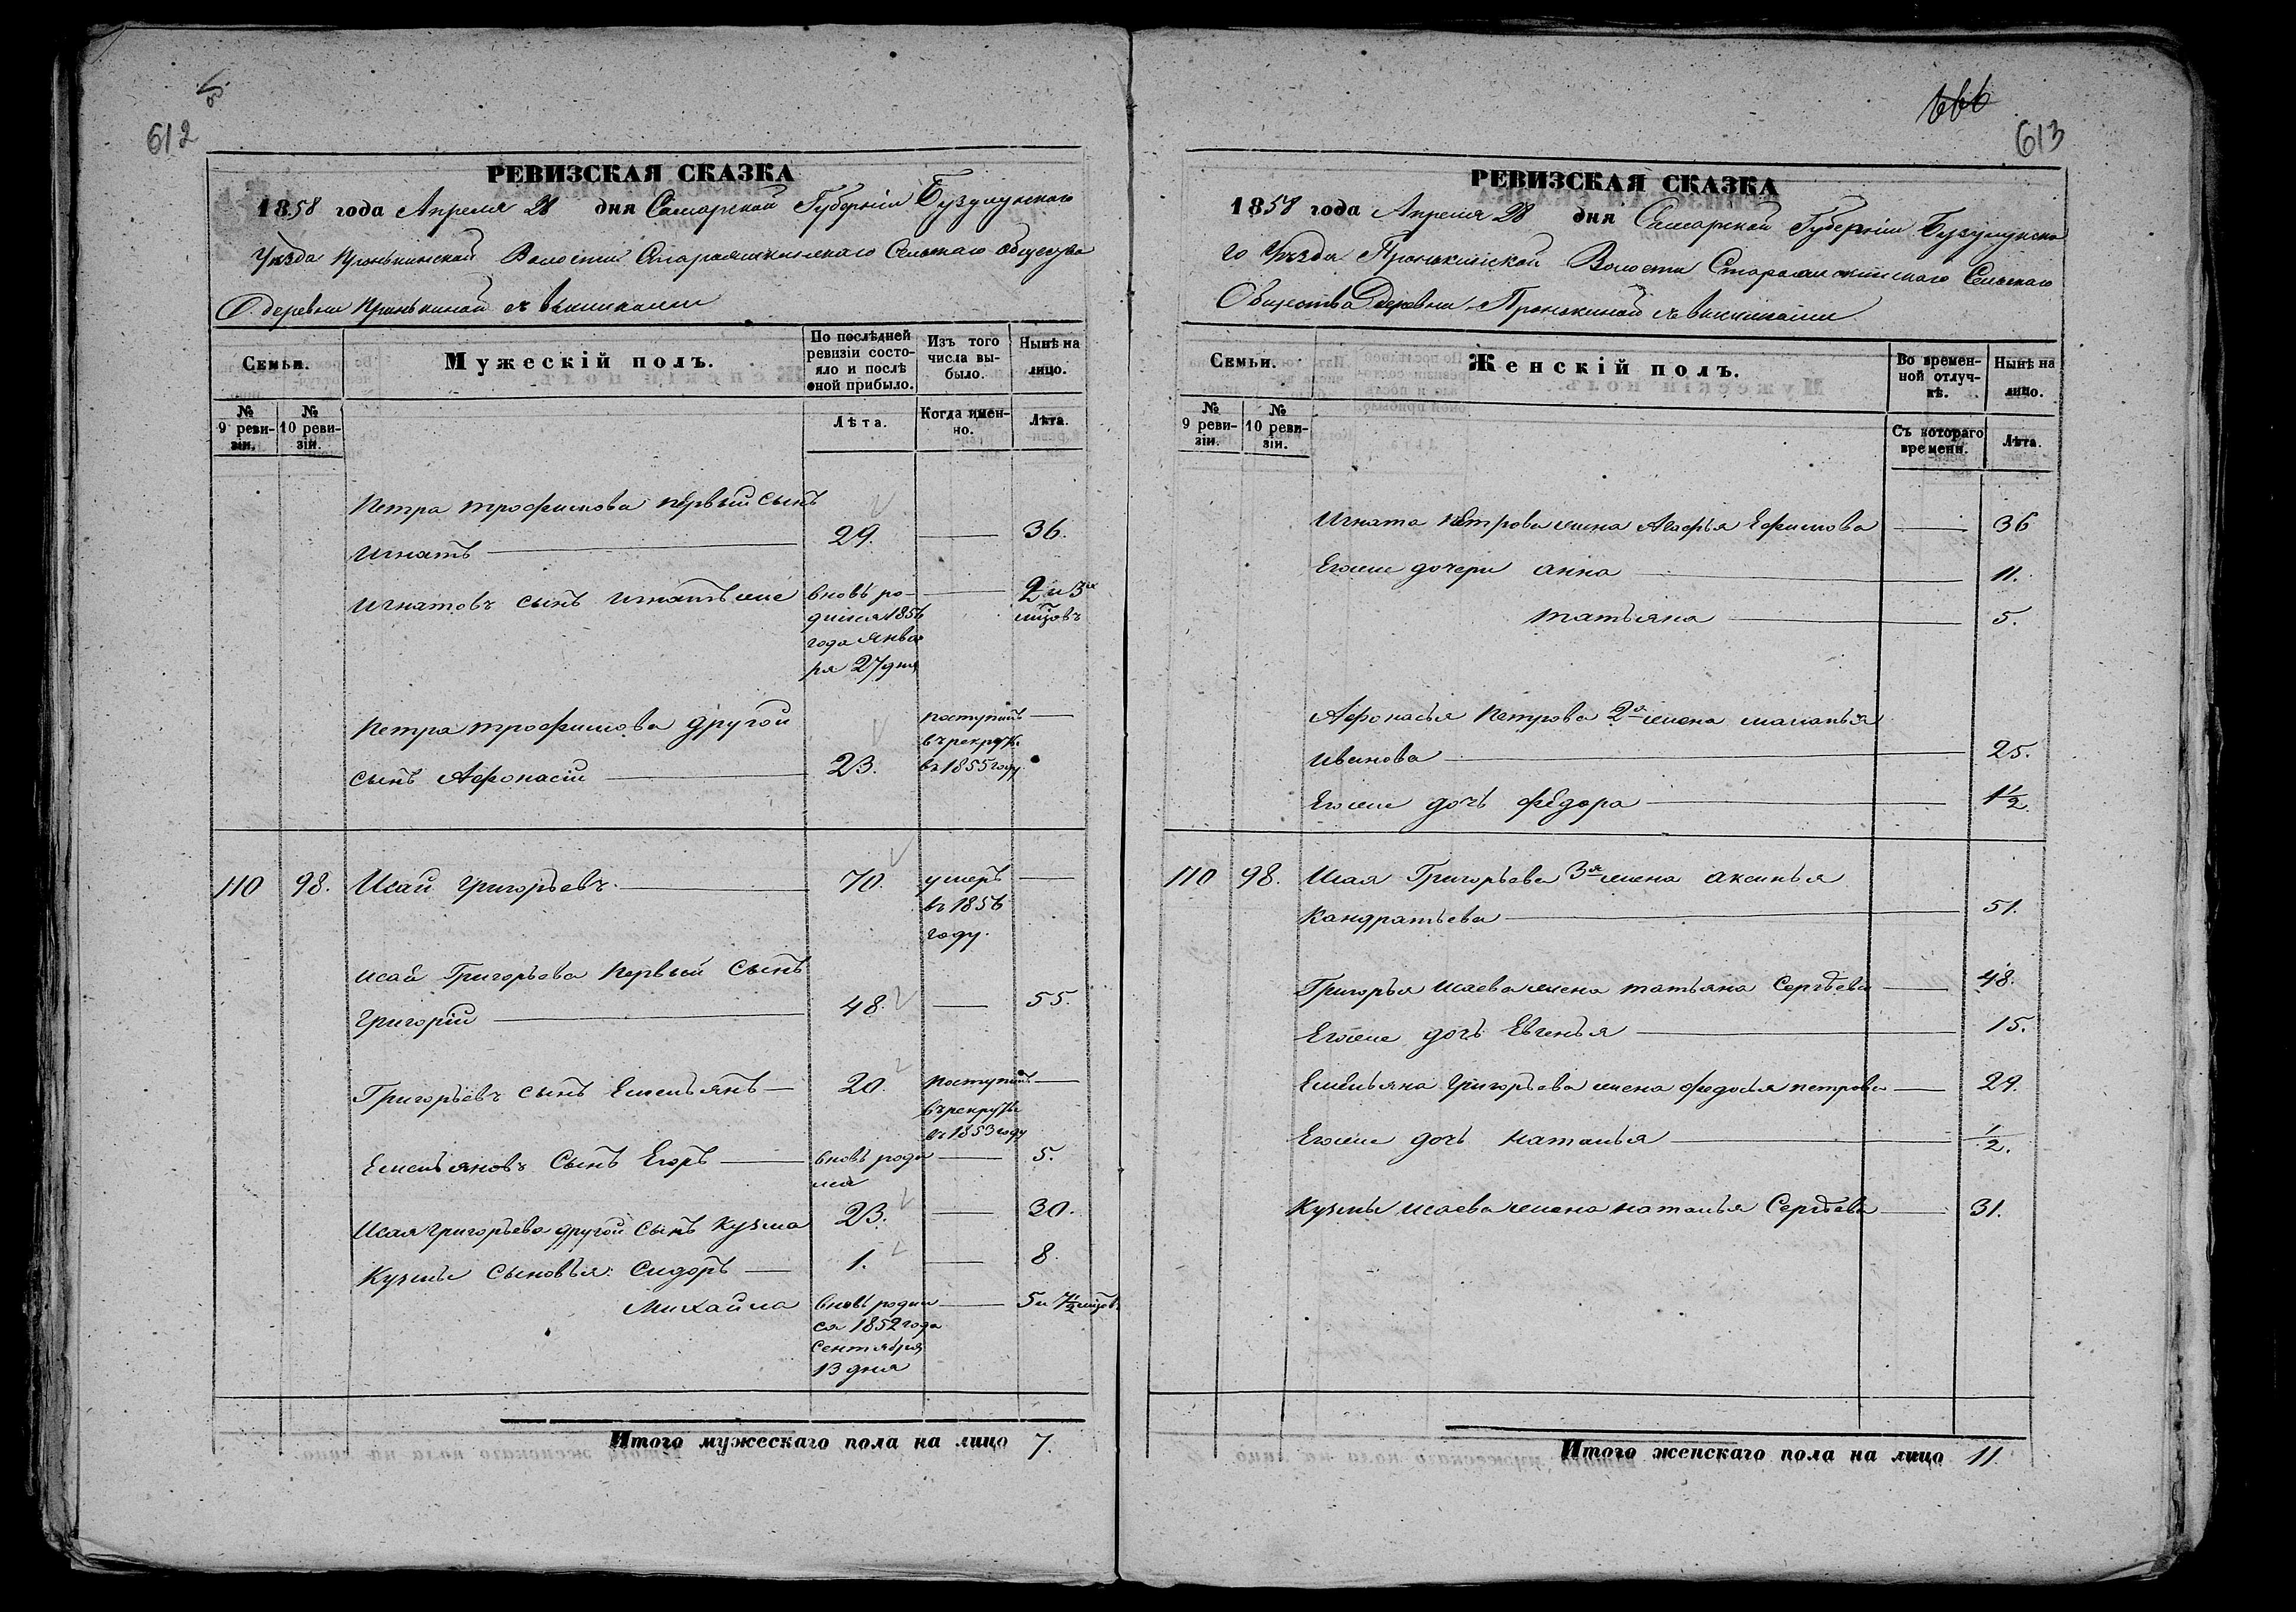 612
РЕВИЗСКАЯ СКАЗКА
1858 года Апреля 28 дня Самарской Губернiи Бузулукского
Уезда Пронькинской Волости Сельскаго Общества
деревни Пронькиной
Семьи.
Мужескій полъ.
По послѣдней ревизіи состояло и послѣ оной прибыло.
Изъ того числа выбыло.
Нынѣ на лицо.
№ 9 ревизіи.
№ 10 ревизіи.
Лѣта.
Когда именно.
Лѣта.
Петра трофимова первый сынъ
Игнатъ 29. 36.
Игнатовъ сынъ Игнатъ же вновь ро- 2 и 3
дился 1856 мцовъ
года Янва
ря 27 дня
Петра трофимова другой поступилъ
сынъ Афонасiй 23. въ рекруты
въ 1855 году
110 98. Исай Григорьевъ 70. умеръ
въ 1856
году.
Исая Григорьева первый сынъ
Григорiй 48. 55.
Григорьевъ сынъ Емельянъ 20. поступилъ
въ рекруты
въ 1853 году
Емельяновъ Сынъ Егоръ вновь роди 5.
лся
Исая Григорьева другой сынъ Кузма 23. 30.
Кузмы сыновья: Сидоръ 1. 8.
Михайла вновь родил 5 и 7½ мцов
ся 1852 года
сентября
13 дня
Итого мужескаго пола на лицо 7.
666
613
РЕВИЗСКАЯ СКАЗКА
1858 года Апреля 28 дня Самарской Губернiи Бузулукска
го Уѣзда Пронькинской Волости Сельскаго
Общества Деревни Пронькиной
Семьи.
Женскій полъ.
Во временной отлучкѣ.
Нынѣ на лицо.
№ 9 ревизіи.
№ 10 ревизіи.
Съ котораго времени.
Лѣта.
Игната петрова жена Агафья Ефимова 36
Егоже дочери анна 11.
татьяна 5.
Афонасья Петрова 2я жена маланья
иванова 25.
Егоже дочь федора 1½.
110 98. Исая Григорьева 3я жена аксинья
Кандратьева 51.
Григорья исаева жена татьяна Сергѣева 48.
Егоже дочь Евгенья 15.
Емельяна Григорьева жена федосья петрова 29.
Егоже дочь наталья ½.
Кузмы исаева жена наталья Сергѣева 31.
Итого женскаго пола на лицо 11.